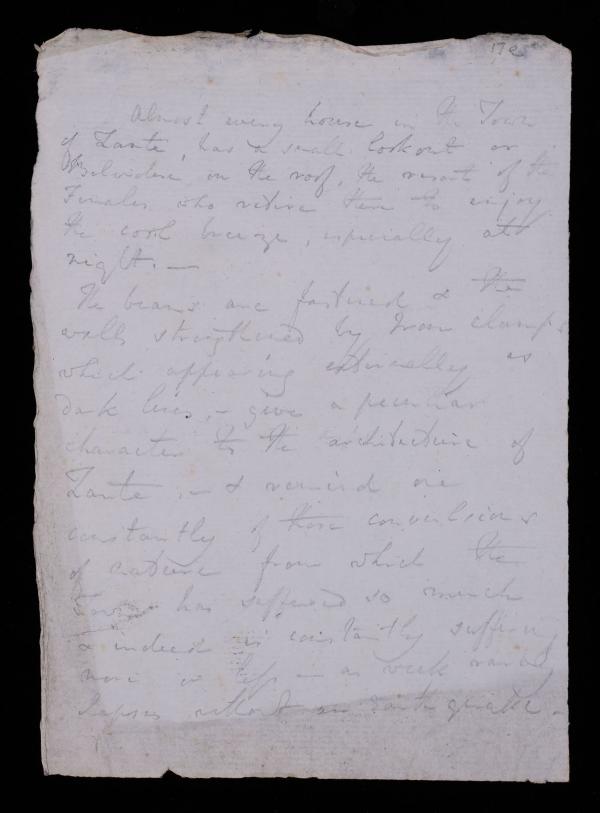 17e
Almost every house in the Town
of Zante, has a small lookout or
Belvidere on the roof, the resort of the
Females who retire there to enjoy
the cool breeze, especially at
night. —
The beams are fastened & the
walls strengthened by Iron clamps
which appearing externally as
dark lines, — give a peculiar
character to the architecture of
Zante — & remind one
constantly of those convulsions
of nature from which the
Town has suffered so much
& indeed is constantly suffering
more or less — as week rarely
lapses without an Earth quake —